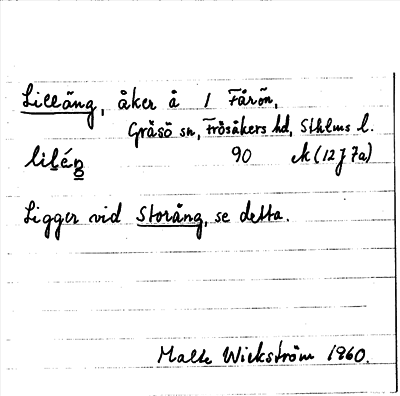 Lilläng, åker å 1 Fårön,
Gräsö sn, Frösåkers hd, Sthlms l.
lilέŋ 90 ek (12 J 7a)
Ligger vid Storäng, se detta.
Malte Wickström 1960.